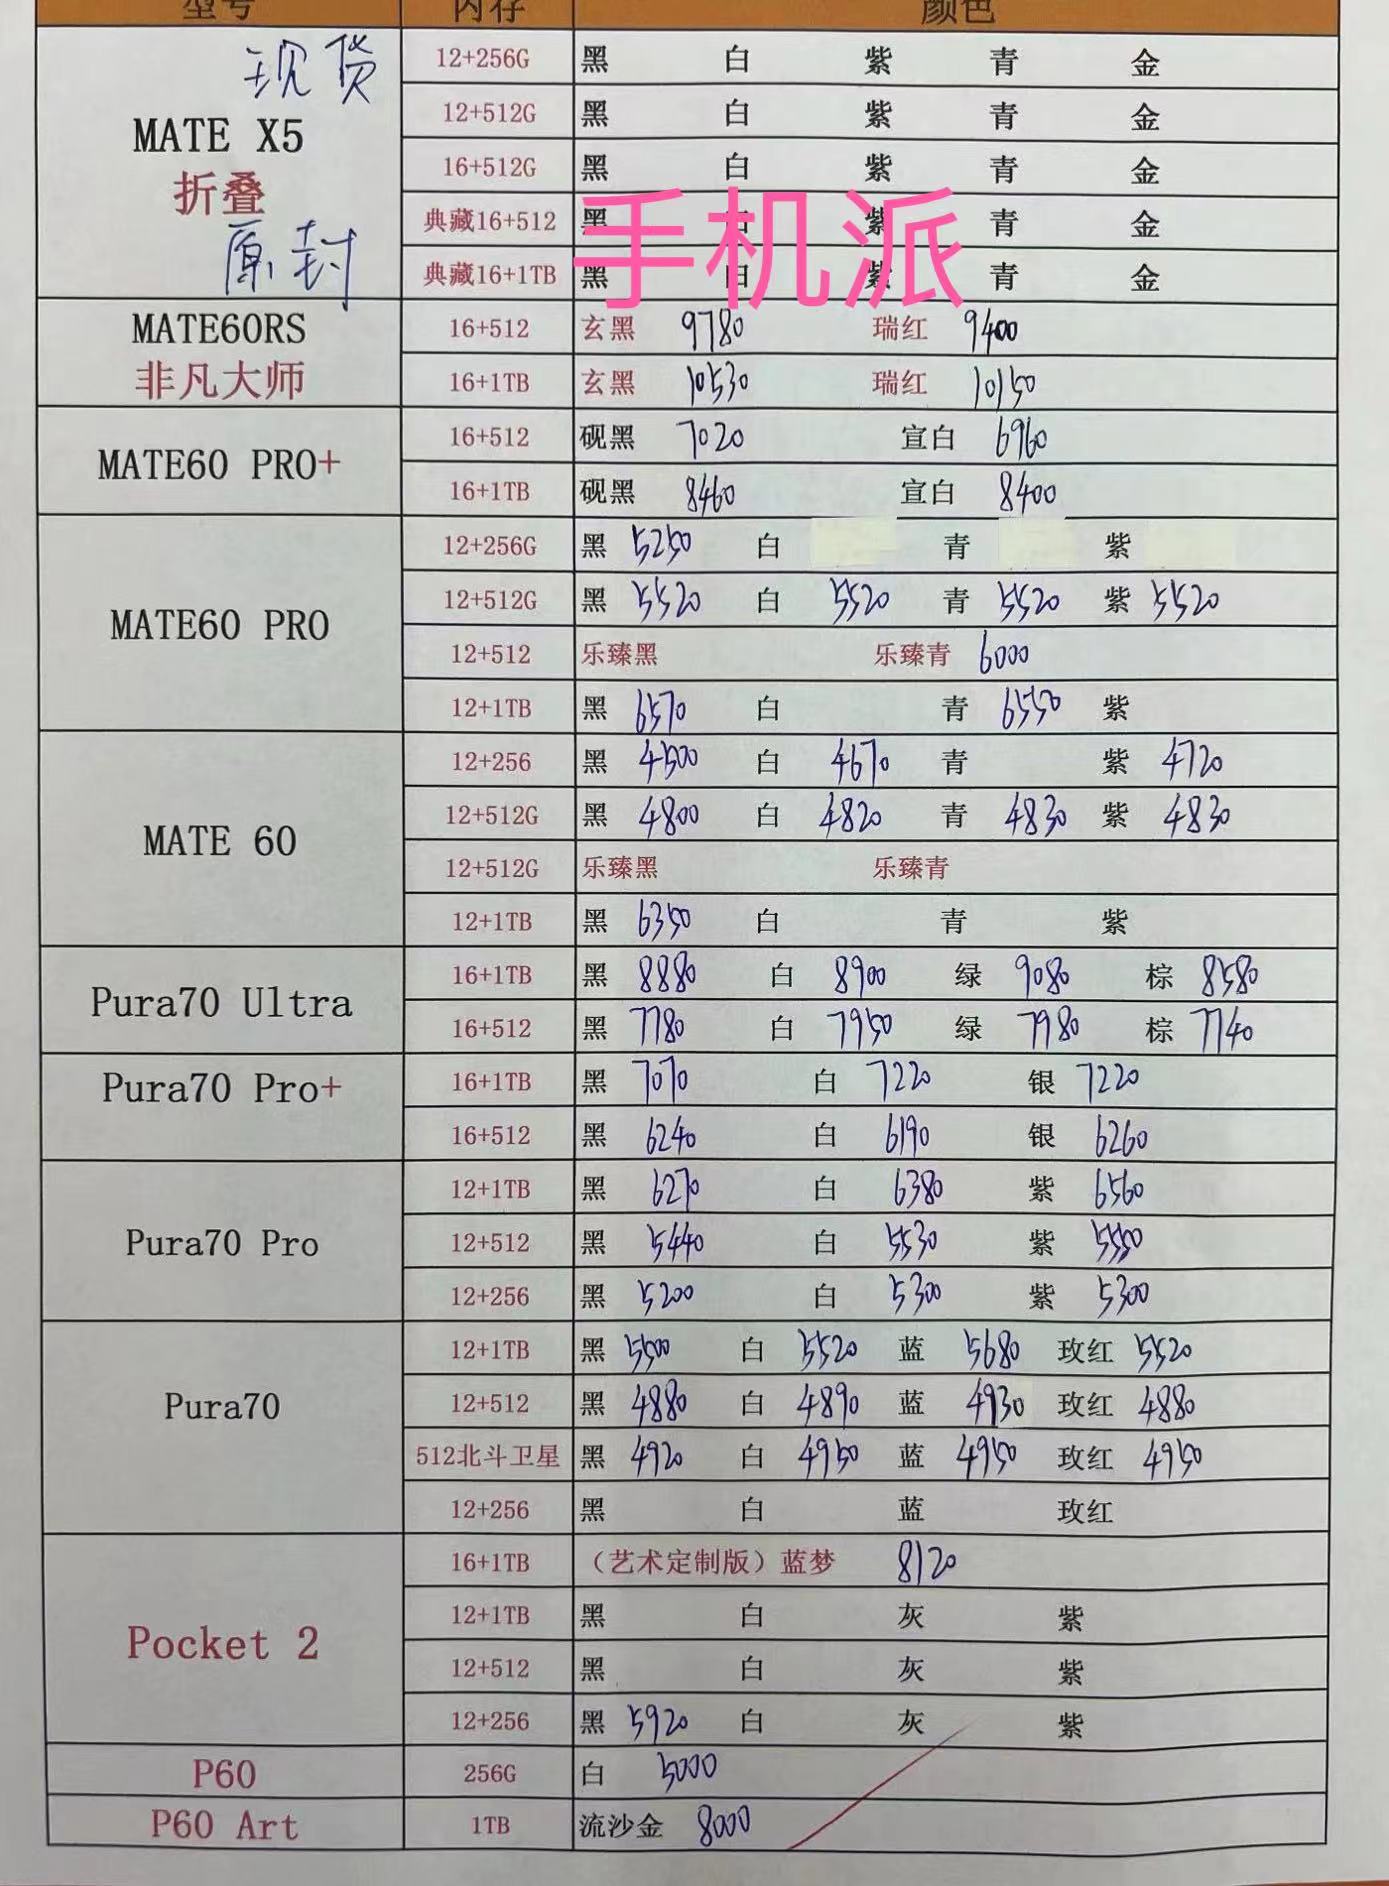 型号 内存 颜色
现货
MATE X5
折叠
原封
12+256G 黑 白 紫 青 金
12+512G 黑 白 紫 青 金
16+512G 黑 白 紫 青 金
典藏16+512 黑 白 紫 青 金
典藏16+1TB 黑 白 紫 青 金
手机派
MATE60RS
非凡大师
16+512 玄黑 9780 瑞红 9400
16+1TB 玄黑 10530 瑞红 10150
MATE60 PRO+
16+512 砚黑 7020 宣白 6960
16+1TB 砚黑 8460 宣白 8400
MATE60 PRO
12+256G 黑 5250 白 青 紫
12+512G 黑 5520 白 5520 青 5520 紫 5520
12+512 乐臻黑 乐臻青 6000
12+1TB 黑 6570 白 青 6550 紫
MATE 60
12+256 黑 4500 白 4670 青 紫 4720
12+512G 黑 4800 白 4820 青 4830 紫 4830
12+512G 乐臻黑 乐臻青
12+1TB 黑 6350 白 青 紫
Pura70 Ultra
16+1TB 黑 8880 白 8900 绿 9080 棕 8580
16+512 黑 7780 白 7950 绿 7980 棕 7740
Pura70 Pro+
16+1TB 黑 7070 白 7220 银 7220
16+512 黑 6240 白 6190 银 6260
Pura70 Pro
12+1TB 黑 6270 白 6380 紫 6560
12+512 黑 5440 白 5530 紫 5550
12+256 黑 5200 白 5300 紫 5300
Pura70
12+1TB 黑 5500 白 5520 蓝 5680 玫红 5520
12+512 黑 4880 白 4890 蓝 4930 玫红 4880
512北斗卫星 黑 4920 白 4950 蓝 4950 玫红 4950
12+256 黑 白 蓝 玫红
Pocket 2
16+1TB （艺术定制版）蓝梦 8120
12+1TB 黑 白 灰 紫
12+512 黑 白 灰 紫
12+256 黑 5920 白 灰 紫
P60 256G 白 5000
P60 Art 1TB 流沙金 8000